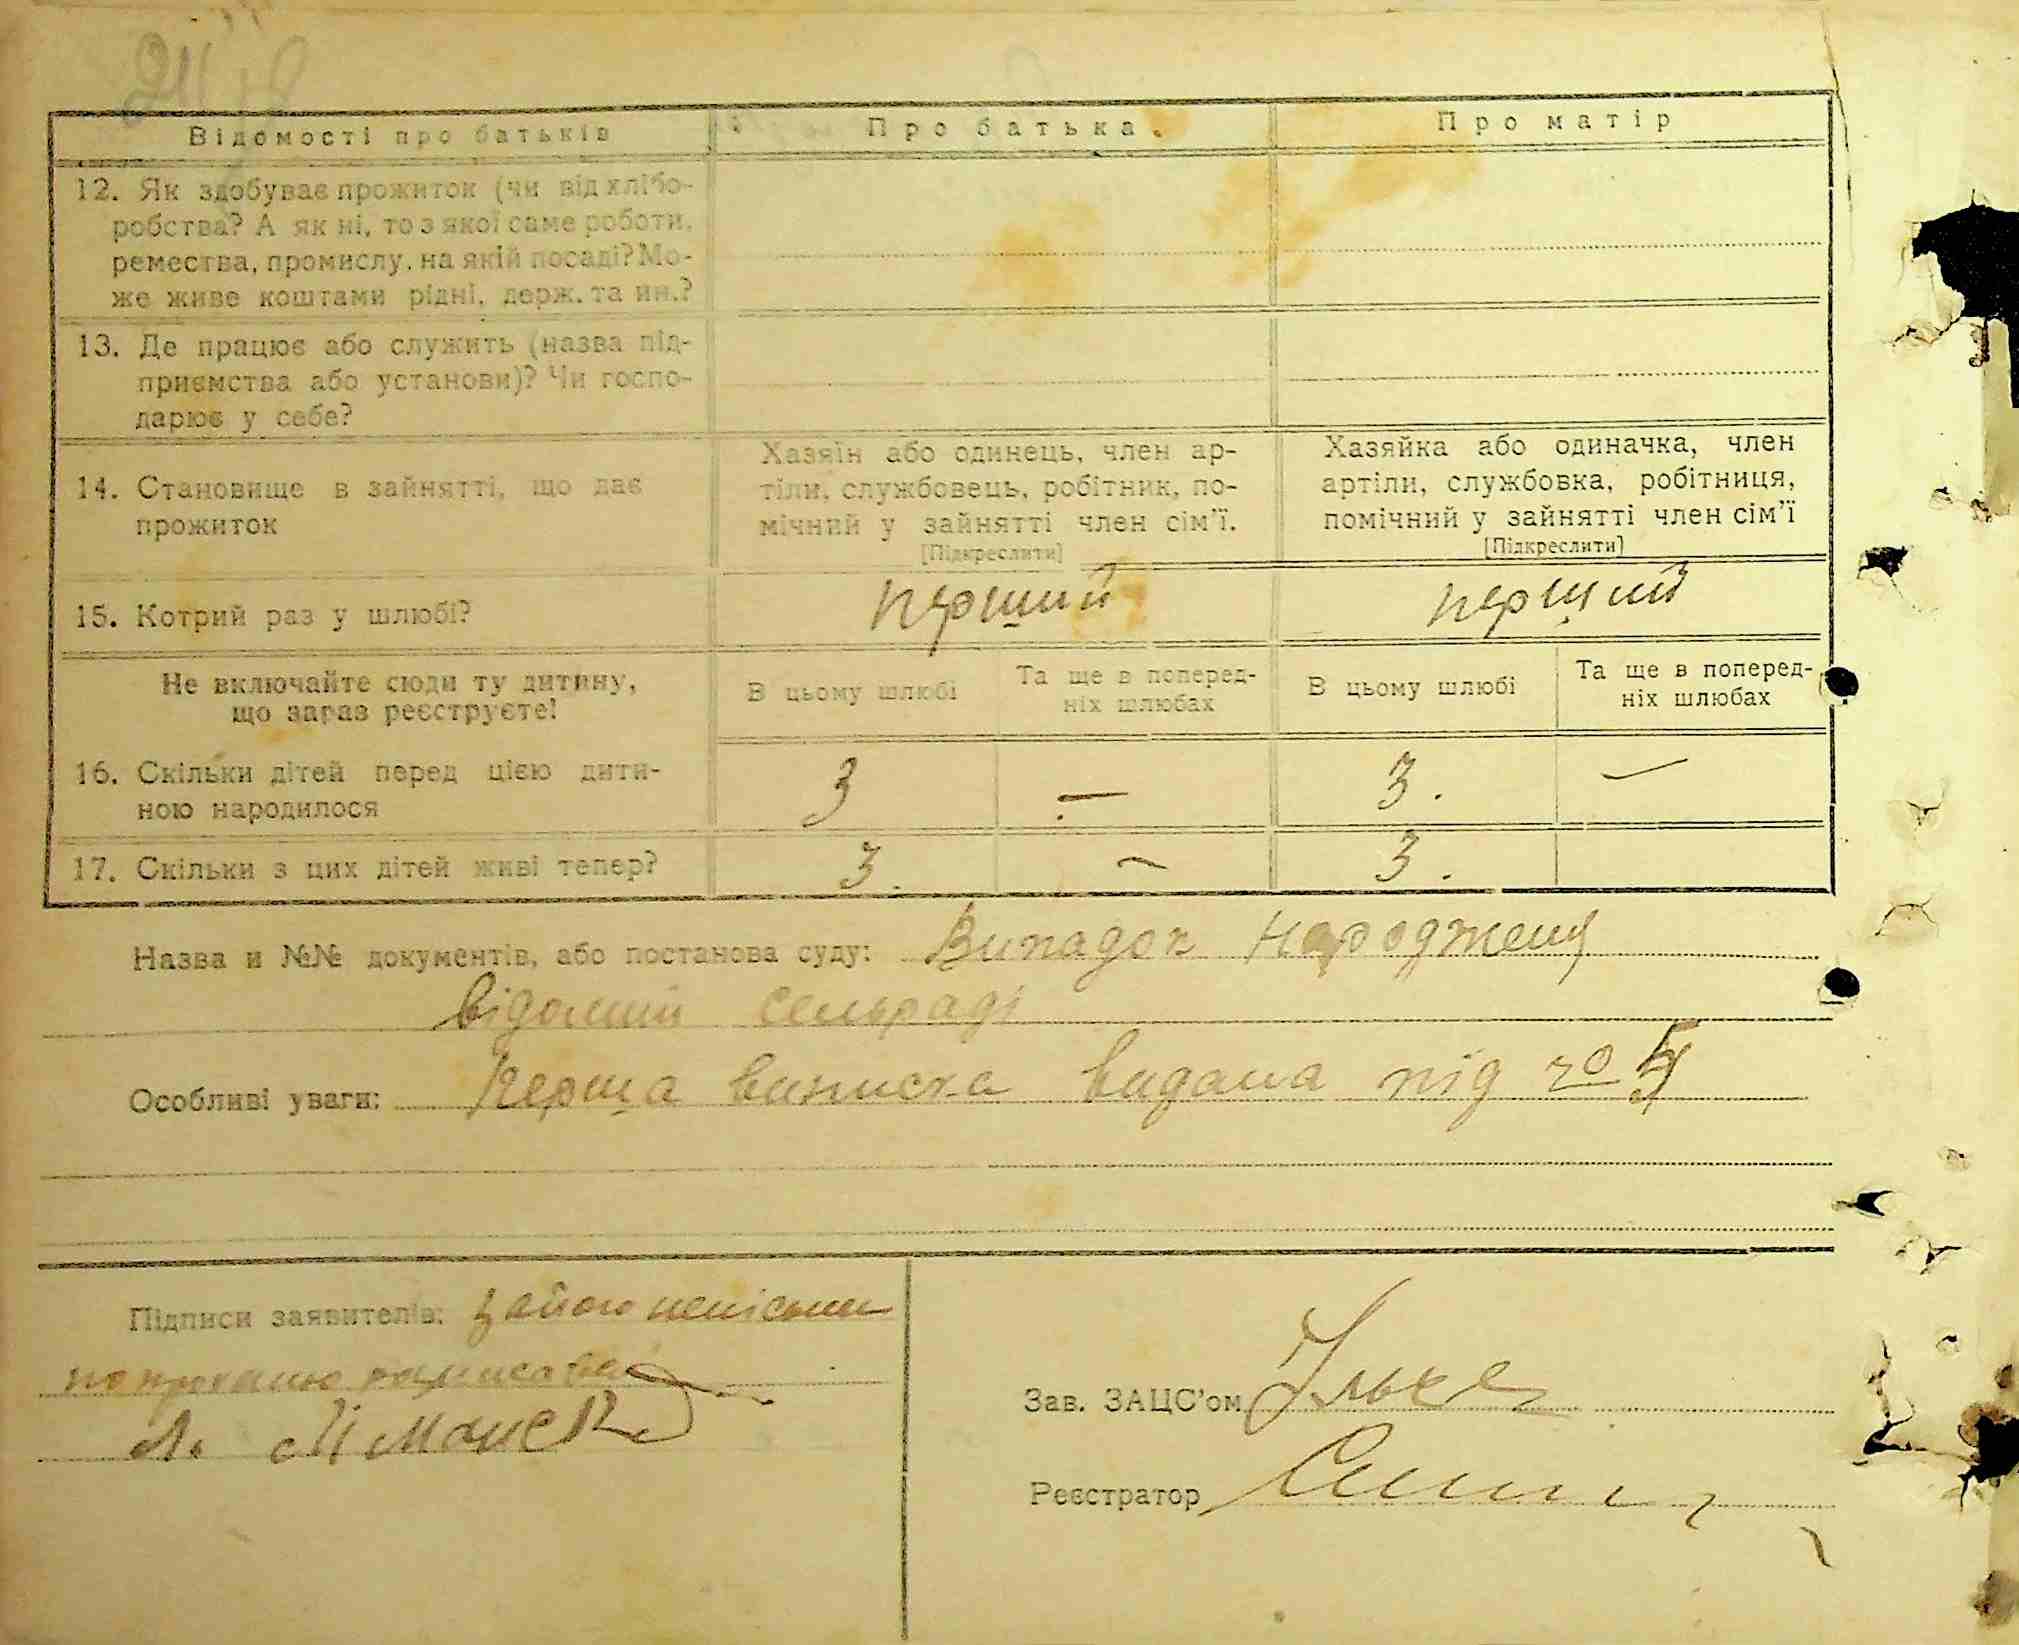 Відомості про батьків
Про батька.
Про матір
12. Як здобуває прожиток (чи від хлібо-
робства? А як ні, то з якої саме роботи,
ремества, промислу, на якій посаді? Мо-
же живе коштами рідні, держ. та ин.?
13. Де працює або служить (назва під-
приємства або установи)? Чи госпо-
дарює у себе?
14. Становище в зайнятті, що дає
прожиток
Хазяїн або одинець, член ар-
тіли, службовець, робітник, по-
мічний у зайнятті член сім'ї.
[Підкреслити]
Хазяйка або одиначка, член
артіли, службовка, робітниця,
помічний у зайнятті член сім'ї
[Підкреслити]
15. Котрий раз у шлюбі?
перший
перший
Не включайте сюди ту дитину,
що зараз реєструєте!
В цьому шлюбі
Та ще в поперед-
ніх шлюбах
В цьому шлюбі
Та ще в поперед-
ніх шлюбах
16. Скільки дітей перед цією дити-
ною народилося
3
—
3.
—
17. Скільки з цих дітей живі тепер?
3.
—
3.
Назва и №№ документів, або постанова суду: Випадок народженя
відомий сельраді
Особливі уваги: Перша виписка видана під № 5
Підписи заявителів:
Зав. ЗАЦС'ом
Реєстратор